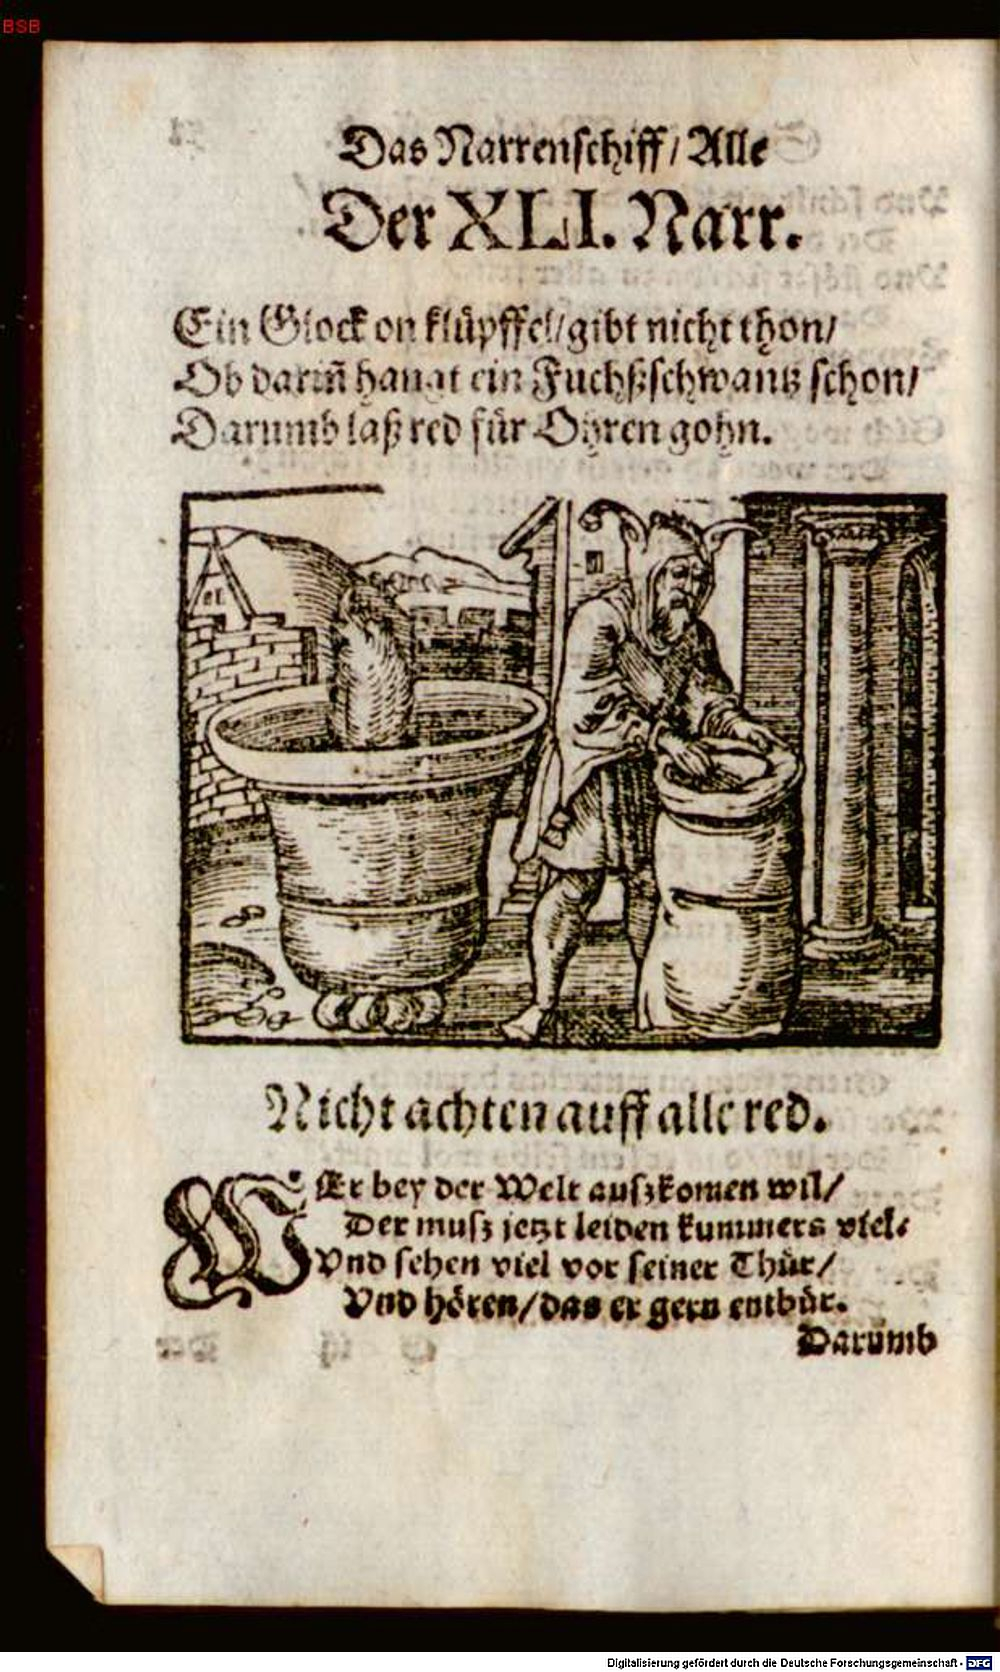 BSB
Das Narrenschiff/ Alle
Der XLI. Narr.
Ein Glock on klüpffel/ gibt nicht thon/
Ob dariñ hangt ein Fuchßschwantz schon/
Darumb laß red für Ohren gohn.
Nicht achten auff alle red.
WEr bey der Welt auszkomen wil/
Der musz jetzt leiden kummers viel/
Vnd sehen viel vor seiner Thür/
Vnd hören/ das er gern entbür.
Darumb
Digitalisierung gefördert durch die Deutsche Forschungsgemeinschaft - DFG